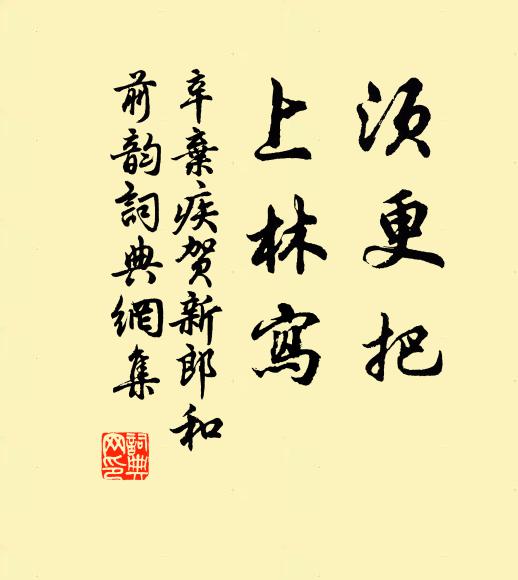 須更把
上林寫
辛棄疾賀新郎和
前韵詞典網集
詞典
网印